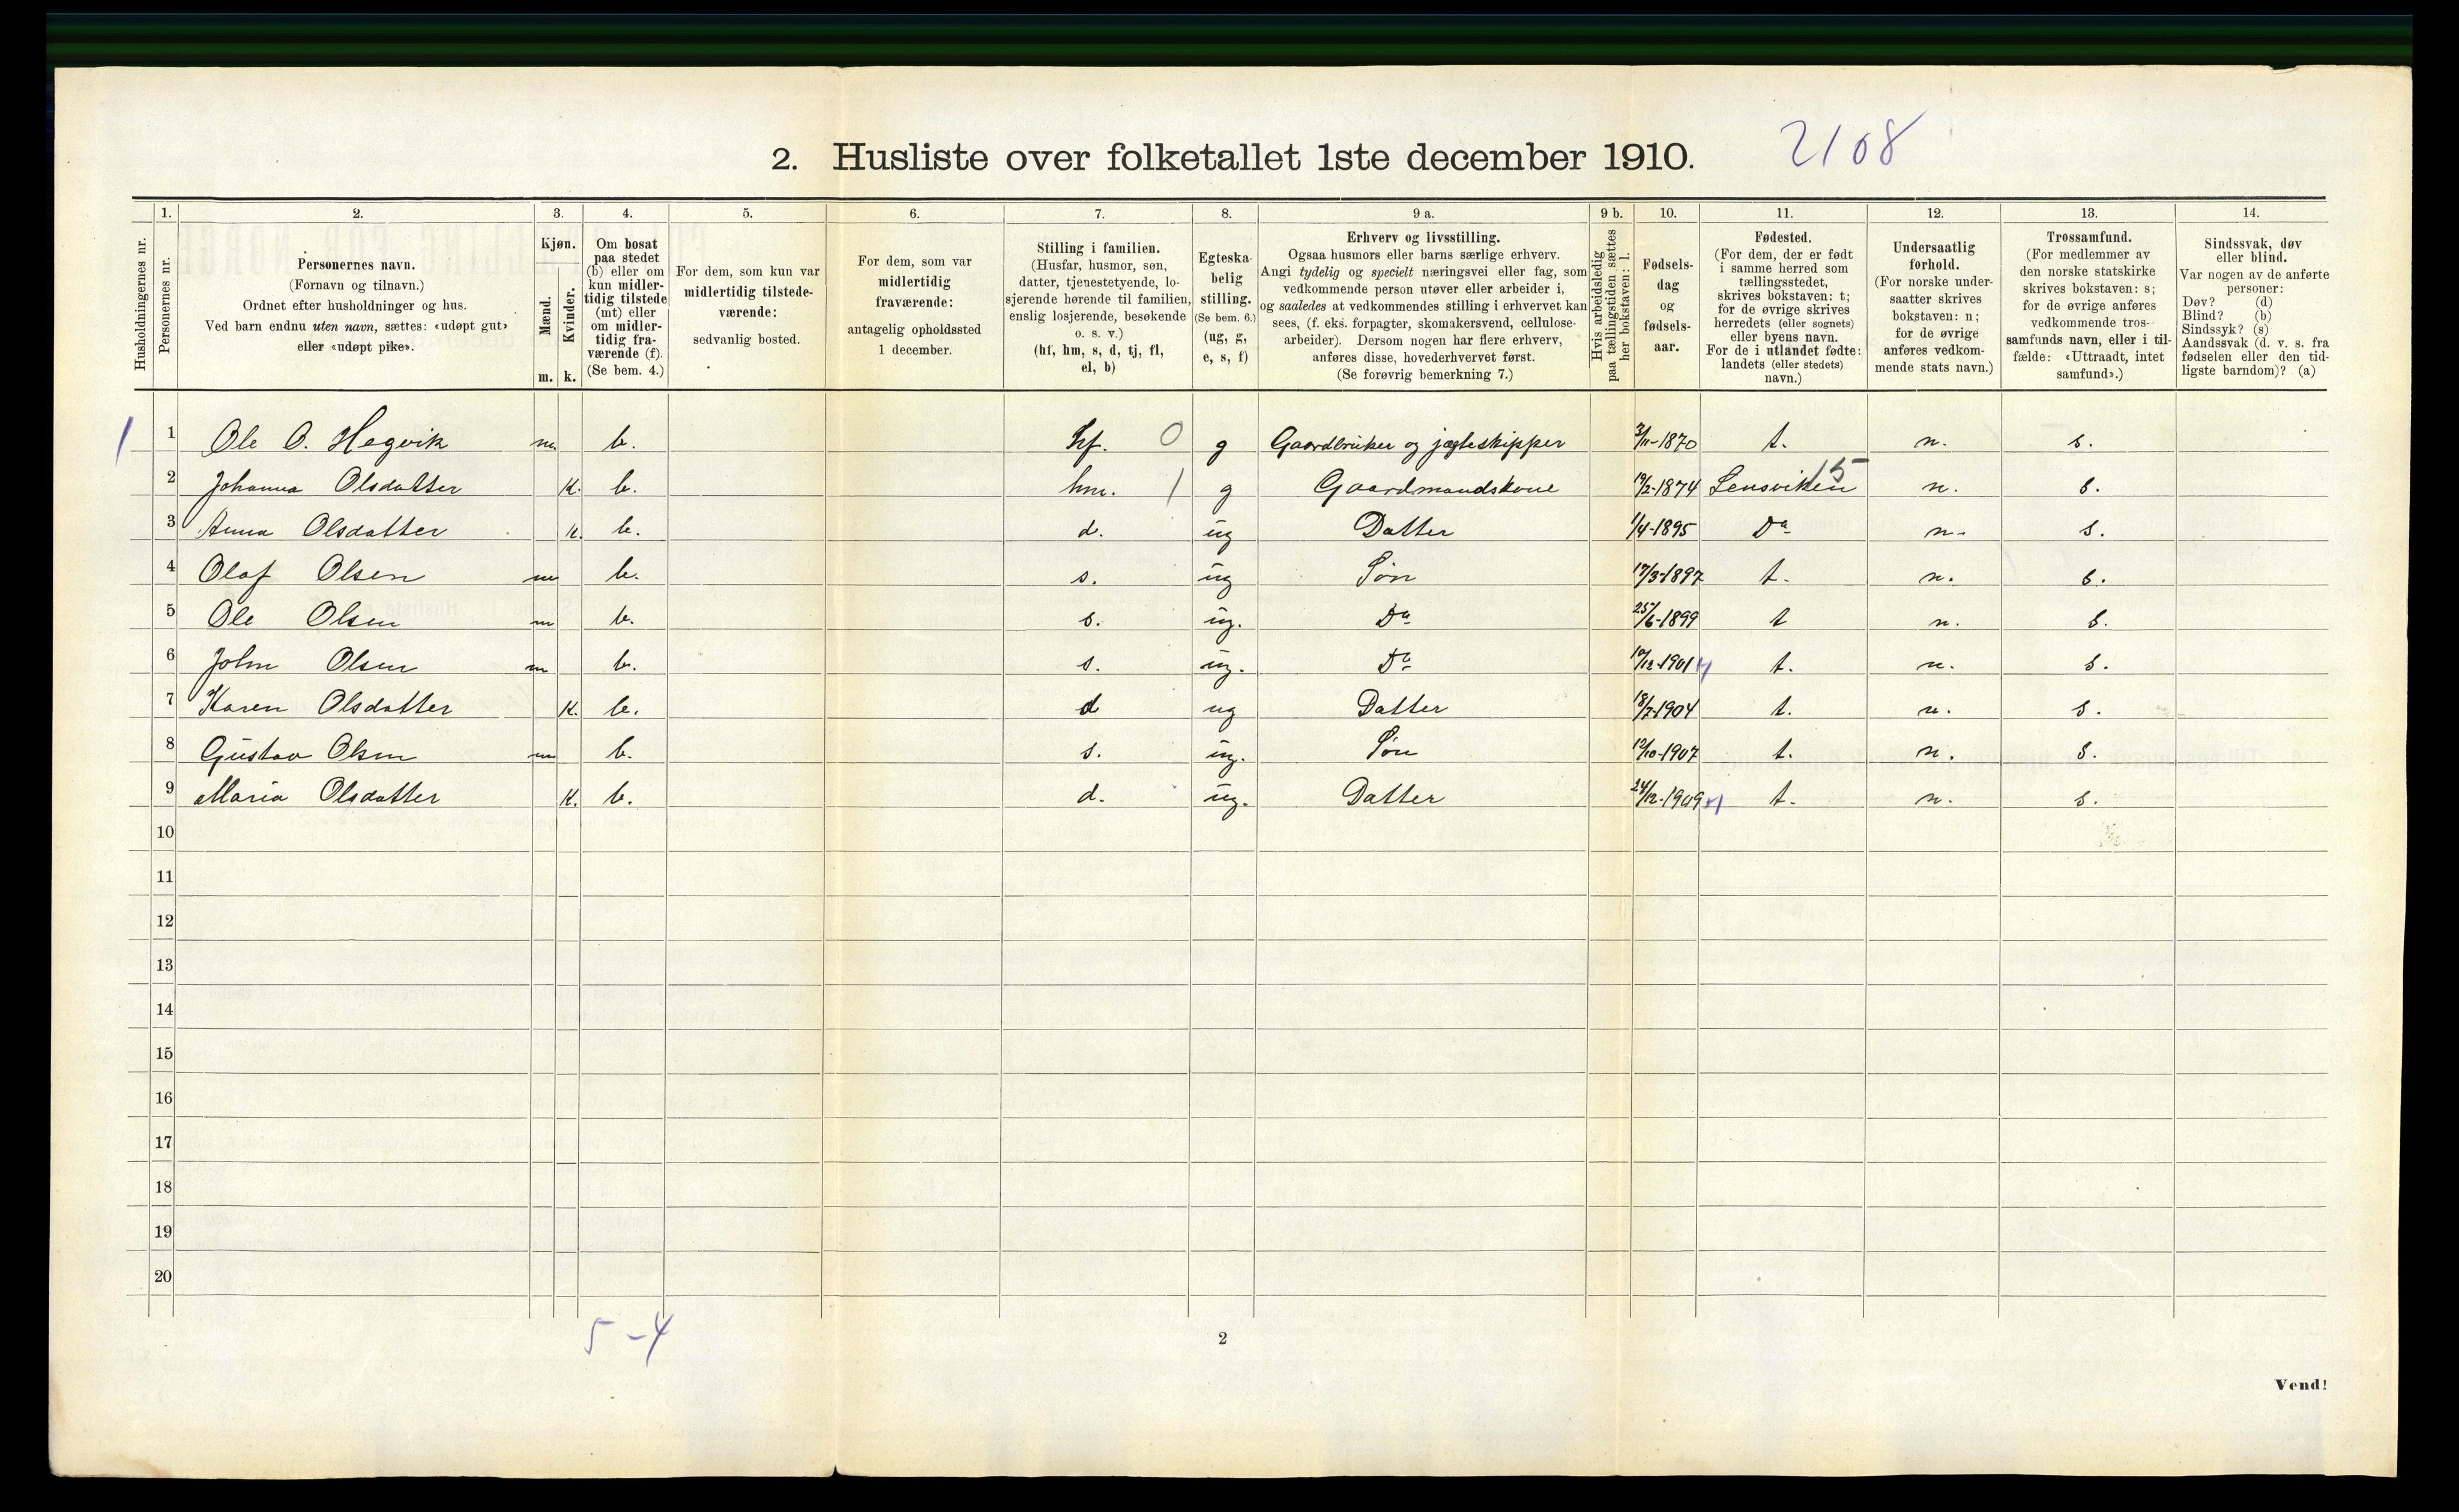 2. Husliste over folketallet 1ste december 1910. 2108
1. 2. 3. 4. 5. 6. 7. 8. 9 a. 9 b. 10. 11. 12. 13. 14.
Husholdningernes nr.
Personernes nr.
Personernes navn.
(Fornavn og tilnavn.)
Ordnet efter husholdninger og hus.
Ved barn endnu uten navn, sættes: «udøpt gut»
eller «udøpt pike».
Kjøn.
Mænd.
Kvinder.
m. k.
Om bosat
paa stedet
(b) eller om
kun midler-
tidig tilstede
(mt) eller
om midler-
tidig fra-
værende (f).
(Se bem. 4.)
For dem, som kun var
midlertidig tilstede-
værende:
sedvanlig bosted.
For dem, som var
midlertidig
fraværende:
antagelig opholdssted
1 december.
Stilling i familien.
(Husfar, husmor, søn,
datter, tjenestetyende, lo-
sjerende hørende til familien,
enslig losjerende, besøkende
o. s. v.)
(hf, hm, s, d, tj, fl,
el, b)
Egteska-
belig
stilling.
(Se bem. 6.)
(ug, g,
e, s, f)
Erhverv og livsstilling.
Ogsaa husmors eller barns særlige erhverv.
Angi tydelig og specielt næringsvei eller fag, som
vedkommende person utøver eller arbeider i,
og saaledes at vedkommendes stilling i erhvervet kan
sees, (f. eks. forpagter, skomakersvend, cellulose-
arbeider). Dersom nogen har flere erhverv,
anføres disse, hovederhvervet først.
(Se forøvrig bemerkning 7.)
Hvis arbeidsledig
paa tællingstiden sættes
her bokstaven: l.
Fødsels-
dag
og
fødsels-
aar.
Fødested.
(For dem, der er født
i samme herred som
tællingsstedet,
skrives bokstaven: t;
for de øvrige skrives
herredets (eller sognets)
eller byens navn.
For de i utlandet fødte:
landets (eller stedets)
navn.)
Undersaatlig
forhold.
(For norske under-
saatter skrives
bokstaven: n;
for de øvrige
anføres vedkom-
mende stats navn.)
Trossamfund.
(For medlemmer av
den norske statskirke
skrives bokstaven: s;
for de øvrige anføres
vedkommende tros-
samfunds navn, eller i til-
fælde: «Uttraadt, intet
samfund».)
Sindssvak, døv
eller blind.
Var nogen av de anførte
personer:
Døv? (d)
Blind? (b)
Sindssyk? (s)
Aandssvak (d. v. s. fra
fødselen eller den tid-
ligste barndom)? (a)
1 1 Ole O. Hegvik m. b. hf. 0 g Gaardbruker og jægteskipper 3/11-1870 t. n. s.
2 Johanna Olsdatter K. b. hm. 1 g Gaardmandskone 19/2-1874 Lensviken 15 n. s.
3 Anna Olsdatter K. b. d. ug Datter 1/4-1895 Do n. s.
4 Olaf Olsen m b. s. ug Søn 17/3-1897 t. n. s.
5 Ole Olsen m b. s. ug. Do 25/6-1899 t n. s.
6 John Olsen m b. s. ug. Do 1901 t. n. s.
7 Karen Olsdatter K. b. d ug Datter 18/7-1904 t. n. s.
8 Gustav Olsen m b. s. ug. Søn 1907 t. n. s.
9 Maria Olsdatter K. b. d. ug. Datter 24/12-1909 t. n. s.
10
11
12
13
14
15
16
17
18
19
20
5-4
2
Vend!